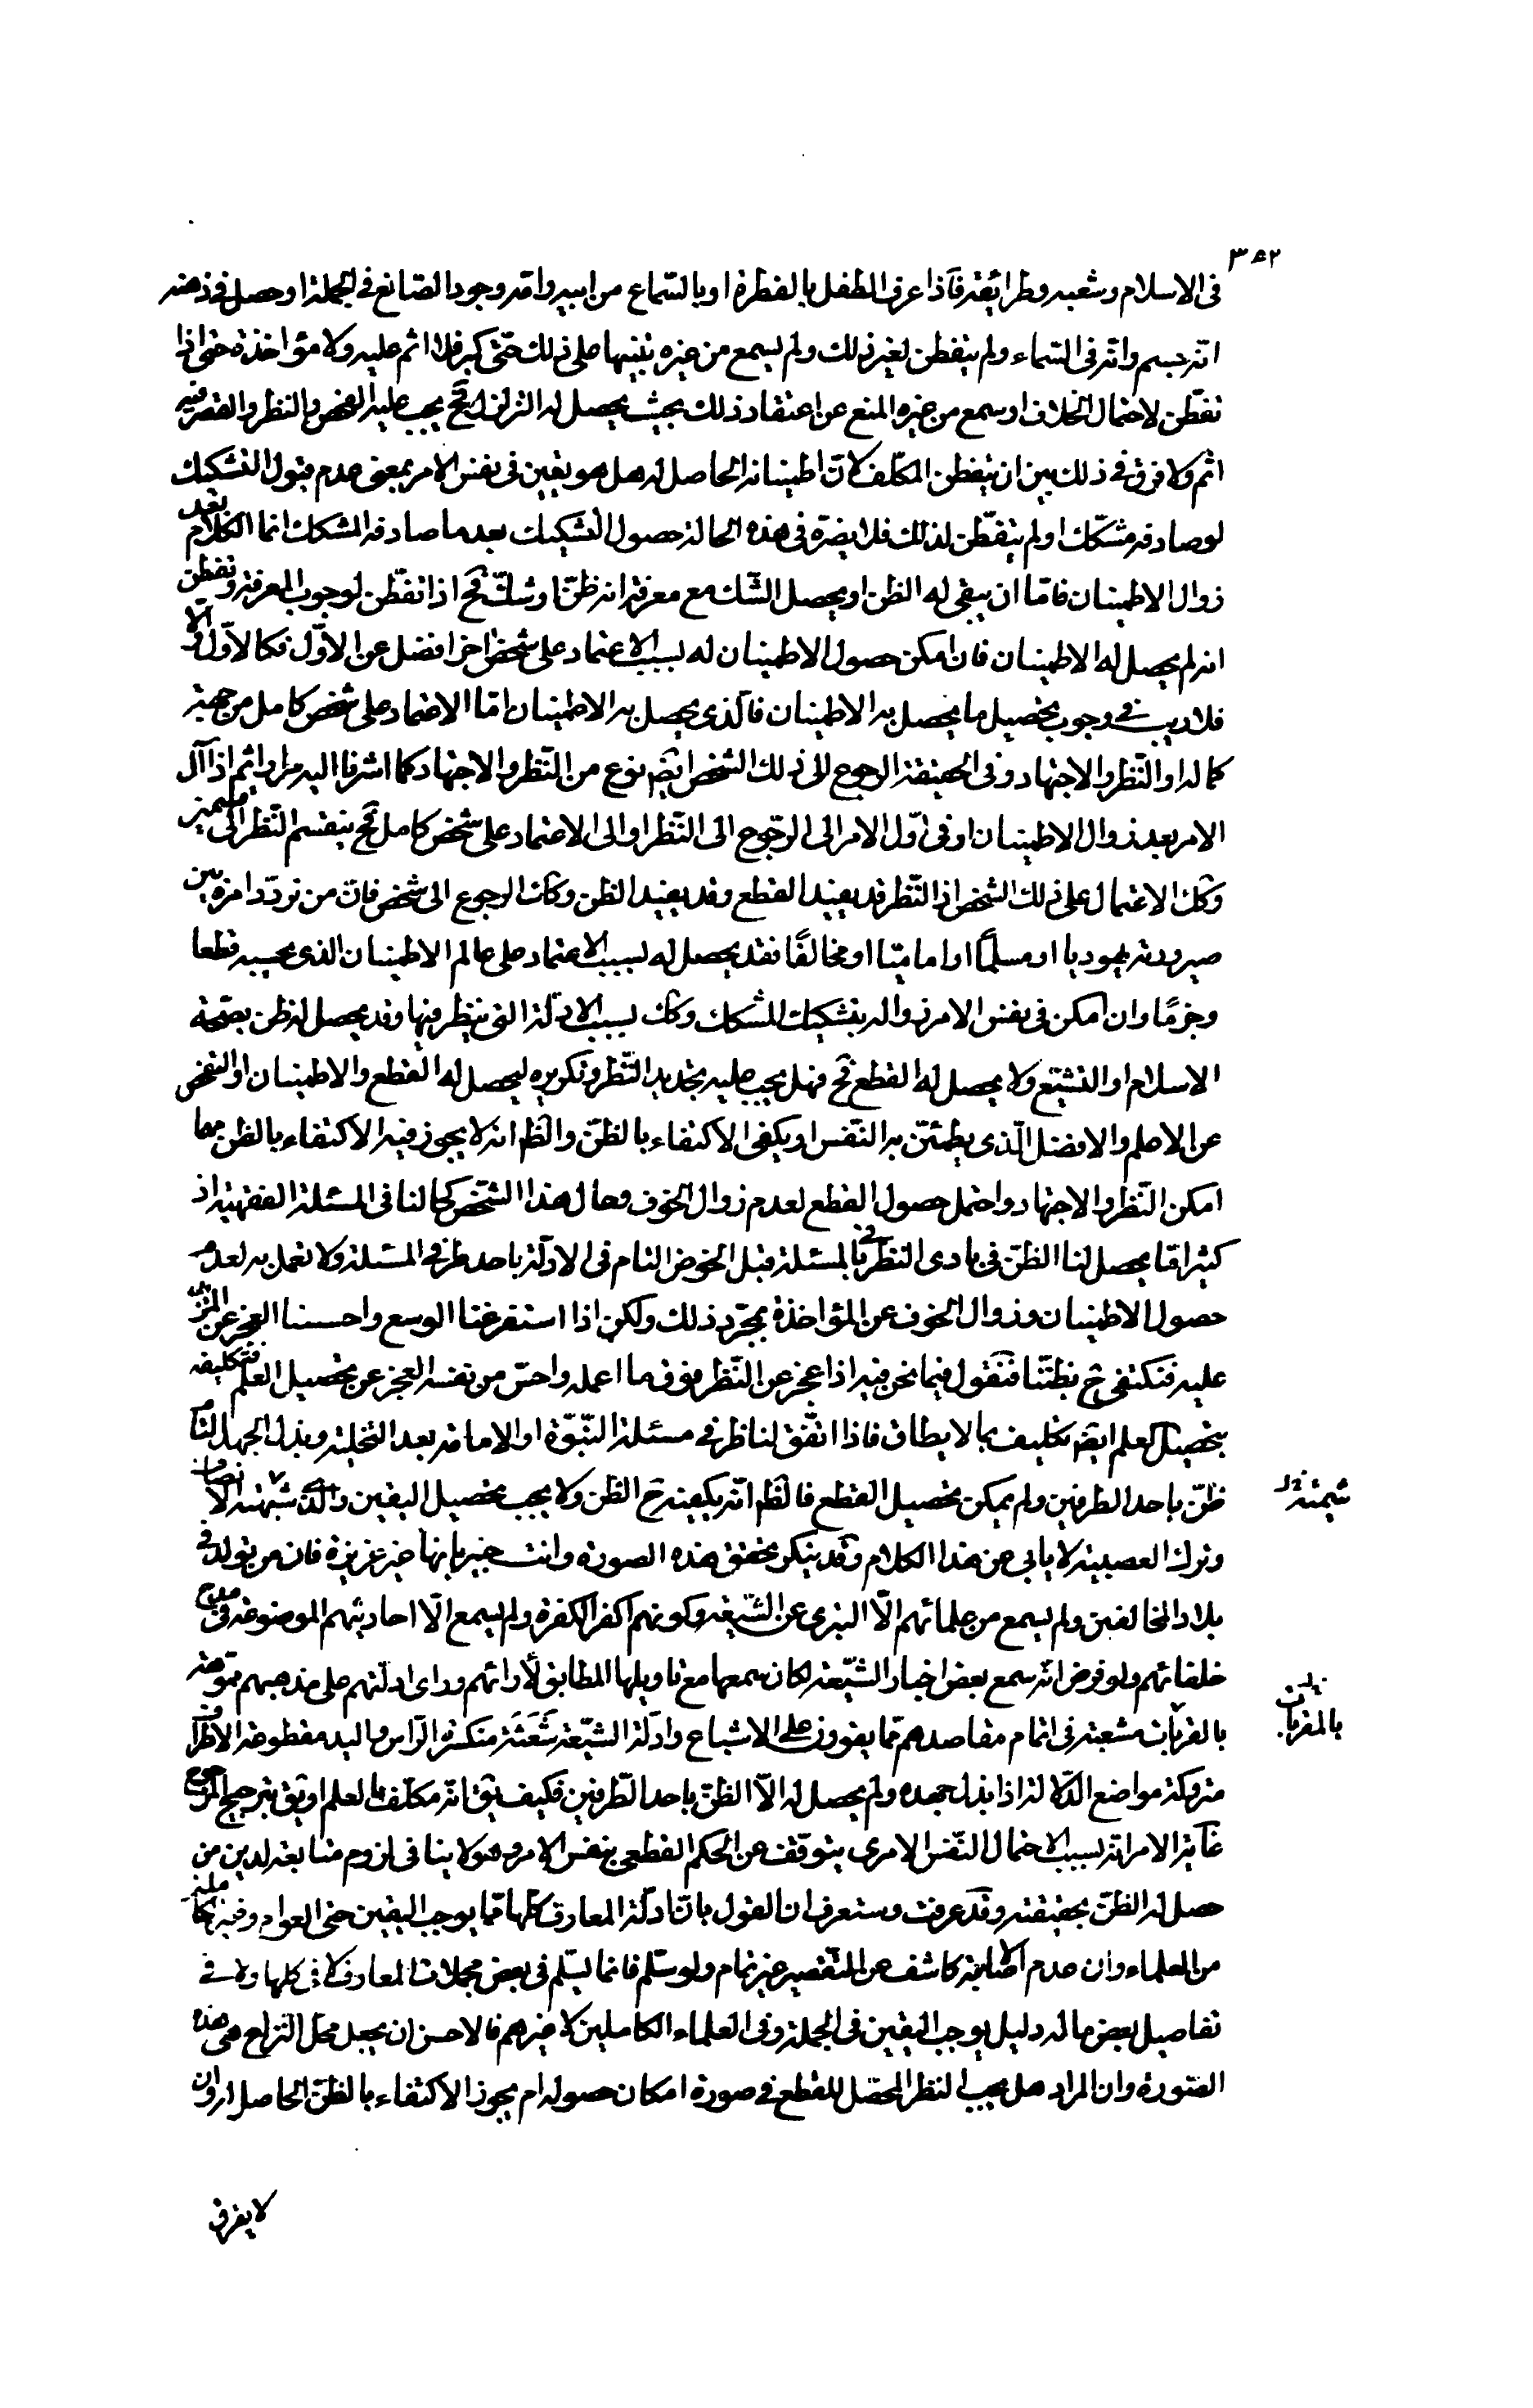 ٣٥٢
فى الاسلام وشعبه وطرائقه فاذا عرف الطفل بالفطرة او بالسّماع من ابيه وامّه وجود الصّانع فى الجملة او حصل فى ذهنه
انّه جسم وانّه فى السّماء ولم يتفطن لغير ذلك ولم يسمع من غيره تنبيها على ذلك حتّى كبر فلا اثم عليه ولا مؤاخذة حتى اذا
تفطّن لاحتمال الخلاف او سمع من غيره المنع عن اعتقاد ذلك بحيث يحصل له التزلزل فح يجب عليه الفحص والنظر والمقصر فيه
اثم ولا فرق فى ذلك بين ان يتفطن المكلّف لانّ اطمينانه الحاصل له هل هو يقين فى نفس الامر بمعنى عدم قبول التشكيك
لو صادفه مشكّك او لم يتفطّن لذلك فلا يضرّه فى هذه الحالة حصول التشكيك بعد ما صادفه المشكك انما الكلام بعد
زوال الاطمينان فامّا ان يبقى له الظن او يحصل الشّك مع معرفة انه ظنّ او شكّ فح اذا تفطّن لوجوب المعرفة وتفطن
انه لم يحصل له الاطمينان فان امكن حصول الاطمينان له بسبب الاعتماد على شخص اخر افضل عن الاوّل فكالاوّل والّا
فلا ريب فى وجوب تحصيل ما يحصل به الاطمينان فالّذى يحصل به الاطمينان امّا الاعتماد على شخص كامل من جهة
كماله او النّظر والاجتهاد وفى الحقيقة الرجوع الى ذلك الشخص ايضا نوع من النّظر والاجتهاد كما اشرنا اليه مرارا ثم اذا آل
الامر بعد زوال الاطمينان او فى اوّل الامر الى الرّجوع الى النّظر او الى الاعتماد على شخص كامل فح ينقسم النّظر الى قسمين
وكك الاعتماد على ذلك الشخص اذ النّظر قد يفيد القطع وقد يفيد الظن وكك الرجوع الى شخص فان من تردّد امره بين
صيرورته يهوديا او مسلما او اماميّا او مخالفًا فقد يحصل له بسبب الاعتماد على عالم الاطمينان الذى يحسبه قطعا
وجزمًا وان امكن فى نفس الامر زواله بتشكيك المشكك وكك بسبب الادلّة التى ينظر فيها وقد يحصل له ظن بصحّة
الاسلام او التشيّع ولا يحصل له القطع فح فهل يجب عليه تجديد النّظر وتكريره ليحصل له القطع والاطمينان او الفحص
عن الاعلم والافضل الّذى يطمئنّ به النّفس او يكفى الاكتفاء بالظنّ والظ انه لا يجوز فيه الاكتفاء بالظن مهما
امكن النّظر والاجتهاد واحتمل حصول القطع لعدم زوال الخوف وحال هذا الشّخص كحالنا فى المسئلة الفقهية اذ
كثيرا مّا يحصل لنا الظنّ فى بادى النظر بالمسئلة قبل الخوض التام فى الادلّة باحد طرفى المسئلة ولا نعمل به لعدم
حصول الاطمينان وزوال الخوف عن المؤاخذة بمجرّد ذلك ولكن اذا استفرغنا الوسع واحسسنا العجز عن المزيد
عليه فنكتفى ح بظنّنا فنقول فيما نحن فيه اذا عجز عن النّظر فوق ما اعمله واحسّ من نفسه العجز عن تحصيل العلم فتكليفه
بتحصيل العلم ايضا تكليف بما لا يطاق فاذا اتّفق لناظر فى مسئلة النّبوّة او الامامة بعد التخلية وبذل الجهد التام
ظنّ باحد الطرفين ولم يمكن تحصيل القطع فالظ انّه يكفيه ح الظن ولا يجب تحصيل اليقين شيمته الانصاف
وترك العصبية لا يابى عن هذا الكلام وقد ينكر تحقق هذه الصورة وانت خبير بانها غير عزيزة فان من يتولد فى
بلاد المخالفين ولم يسمع من علمائهم الّا التبرى عن الشّيعة وكونهم اكفر الكفرة ولم يسمع الّا احاديثهم الموضوعة فى مدح
خلفائهم ولو فرض انّه سمع بعض اخبار الشّيعة لكان سمعها مع تاويلها المطابق لآرائهم وراى ادلّتهم على مذهبهم مموّهة
مشعبة فى اتمام مقاصدهم ممّا يفوق على الاشباع وادلّة الشّيعة شَعَثَة منكسرة الرّاس واليد مقطوعة الاطراف
متروكة مواضع الدّلالة اذا بذل جهده ولم يحصل له الّا الظنّ باحد الطّرفين فكيف يق انّه مكلّف بالعلم او يق بترجيح المرجوح
غاية الامر انه بسبب الاحتمال النّفس الامرى يتوقف عن الحكم القطعى بنفس الامر وهو لا ينافى لزوم متابعته لدين من
حصل له الظنّ بحقيقته وقد عرفت وستعرف ان القول بانّ ادلّة المعارف كلّها ممّا يوجب اليقين حتى العوام
من العلماء وان عدم الاصابة كاشف عن التقصير غير تمام ولو سلّم فانما يسلّم فى بعض مجملات المعارف لا فى كلها ولا فى
تفاصيل بعض ما له دليل يوجب اليقين فى الجملة وفى العلماء الكاملين لا غيرهم فالاحسن ان يجعل محل النّزاع هى هذه
الصّورة وان المراد هل يجب النظر المحصّل للقطع فى صورة امكان حصوله ام يجوز الاكتفاء بالظنّ الحاصل له وان
شيمته
بالمقربات
لا يفرق